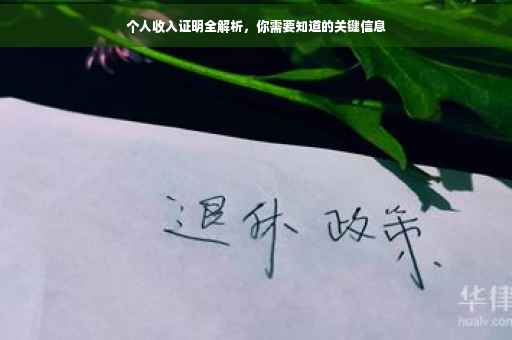 个人收入证明全解析，你需要知道的关键信息
退休 政策
华律
hualv.com